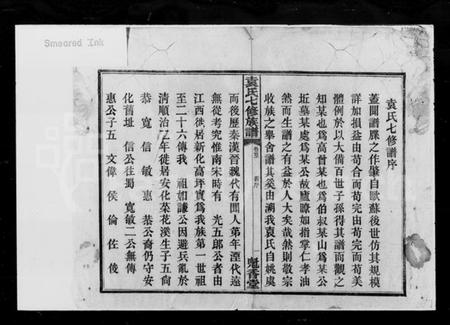 Smeared Ink
袁氏七修譜序
蓋聞譜牒之作肇自歐蘇後世仿其規模
詳加損益由苟合而苟完由苟完而苟美
體例於以大備百世子孫得其譜而觀之
知某也為高曾某也為伯叔某山為某公
近墓某處為某公故廬瞭如指掌仁孝油
然而生譜之有益於人大矣哉然則敬宗
收族之舉舍譜其奚由溯我袁氏自姚虞
袁氏七修族譜
卷首
魁書堂
而後歷秦漢晉魏代有聞人第年湮代遠
無從考究惟南宋時有 光五郎公者由
江西徙居新化高坪實為我族第一世祖
至二十六傳我 祖如謙公因避兵亂於
清順治二年徙居安化菜花溪生子五尚
恭 寬 信 敏 惠 恭公裔仍守安
化舊址 信公往蜀 寬敏二公無傳
惠公子五 文偉 侯 倫 佐 俊